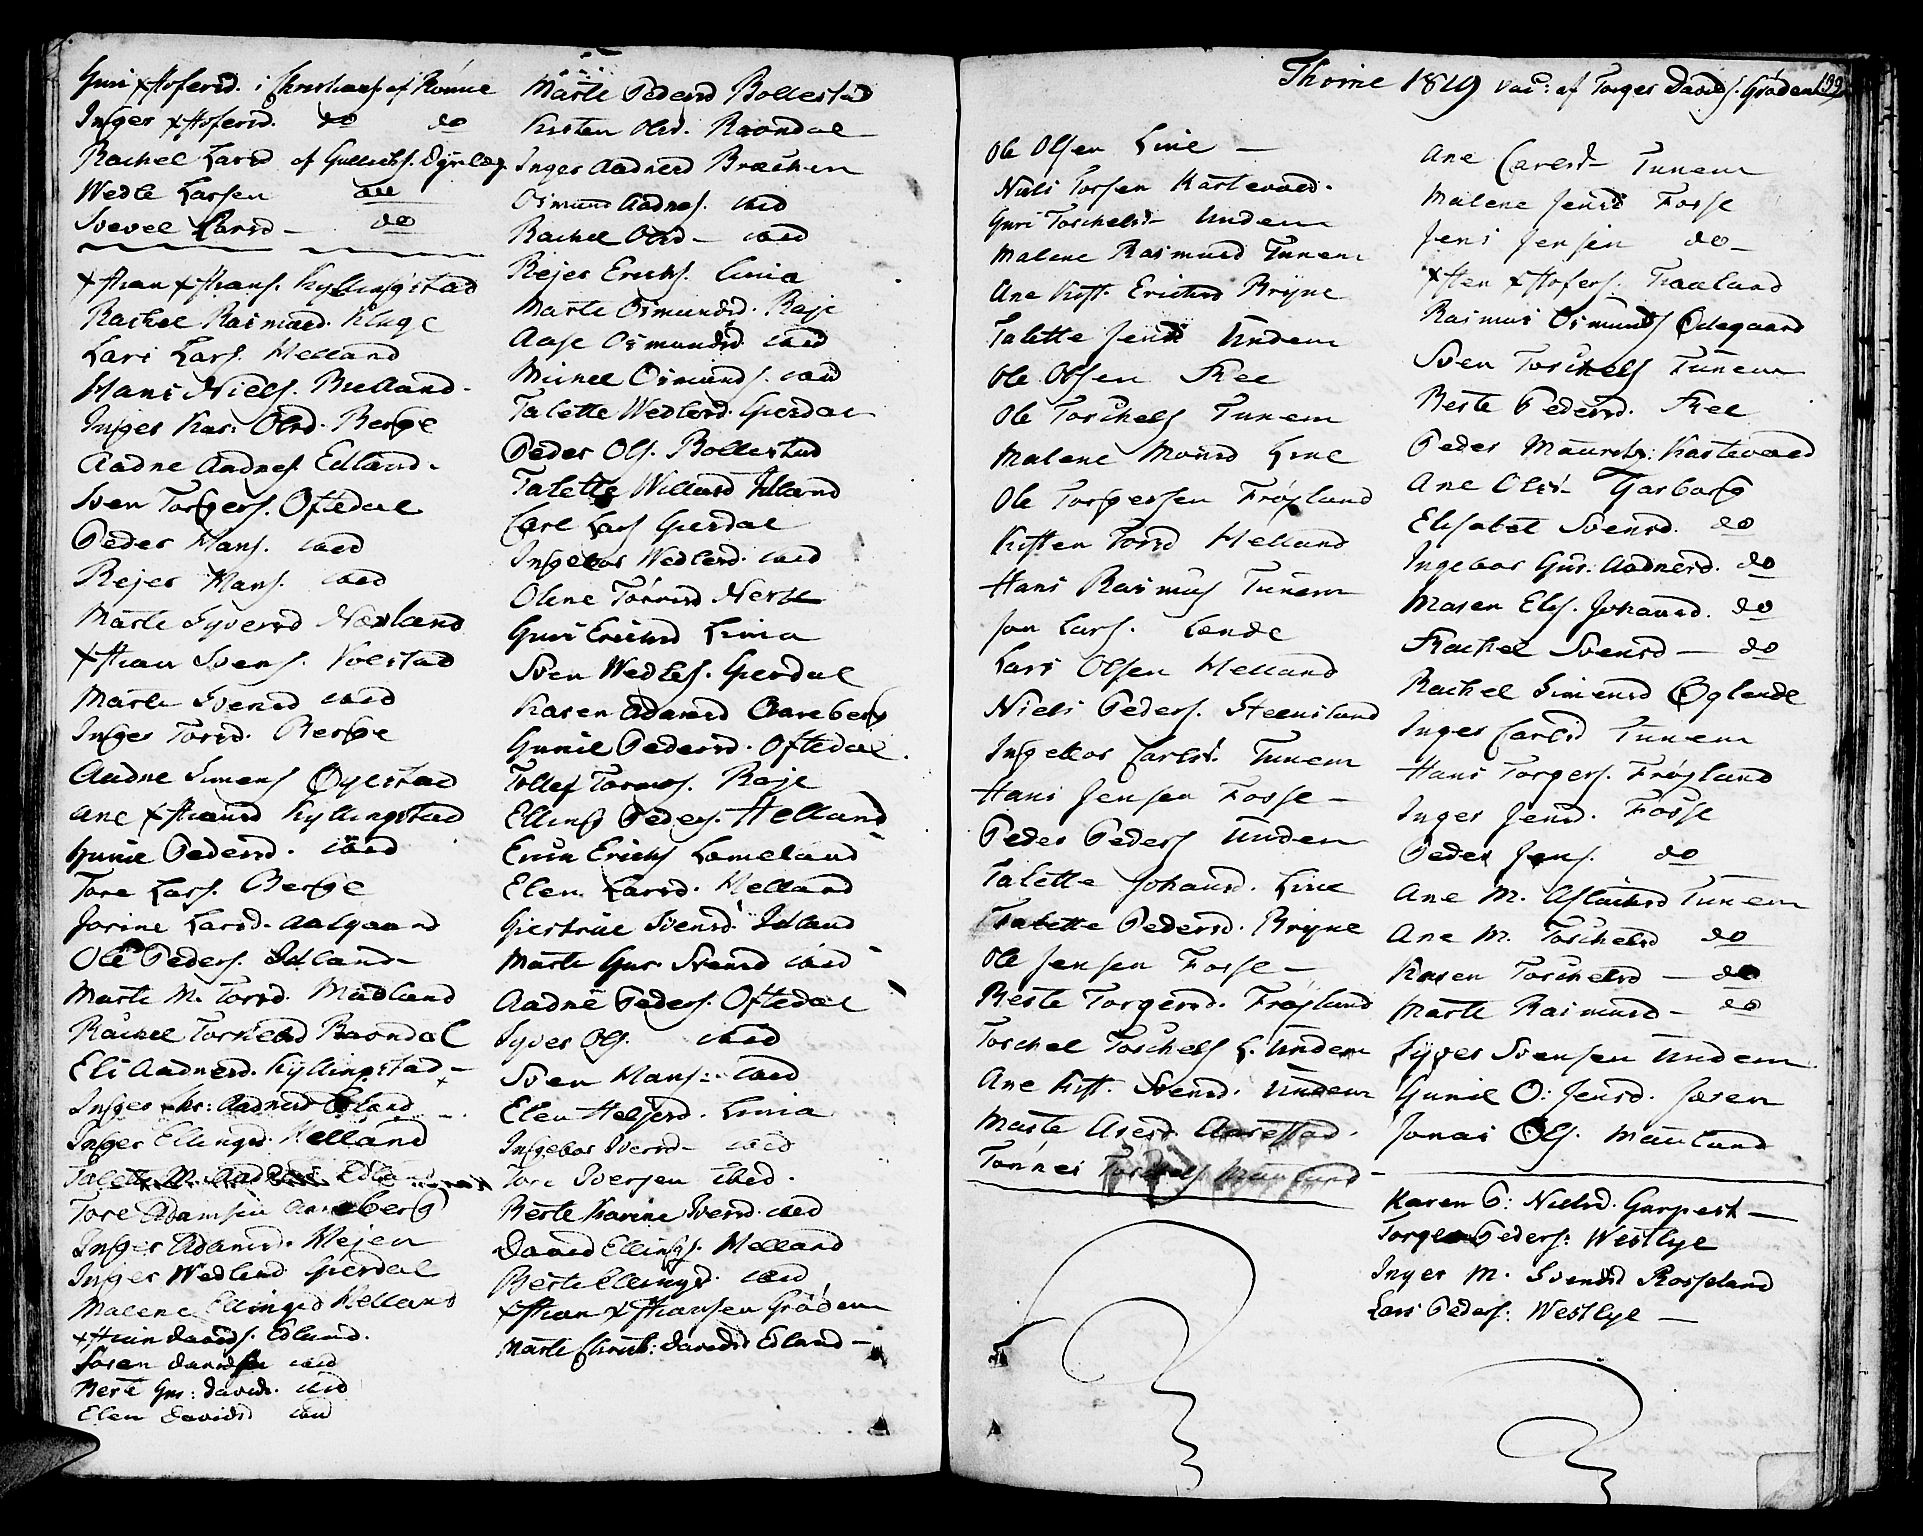 Guri Hofersd. i Christians af Rönne
Inger Hofersd. do do
Rachel Larsd af Gullichs. Dyrlag
Wedle Larsen do
Sevel Larsd - do
Han Hans. Kyllingstad
Rachel Rasmusd. Kluge
Lars Lars. Helland
Hans Niels. Buelland.
Inger Kar: Olsd. Berge
Aadne Aadnes. Edland.
Sven Torgers. Oftedal
Peder Hans. ibid
Rejer Hans. ibid
Marte Syversd Nævland
Han Svens. Volstad
Marte Svensd ibid
Inger Torsd. Berge
Aadne Simens Øgestad
Ane Hansd Kyllingstad
Gunil Pedersd. ibid
Tore Lars. Berge
Jorine Larsd. Aalgaard
Ole Peders. Idland
Marte M. Torsd. Madland
Rachel Torkelsd Raondal
Eli Aadnesd. Kyllingstad -
Inger Kr: Aadnesd Edland
Inger Ellingsd. Helland
Talette M. Aadnesd Edland
Tore Adamsen Aareberg
Inger Adamsd. Kejen
Inger Wedlesd Gierdal
Malene Ellingsd Helland
Han Davids. Edland.
Soren Davidsen ibid
Berte Gur: Davids. ibid
Elen Davidsd ibid
Marte Pedersd Bollestad
Kirsten Olsd. Raondal
Inger Aadnesd Bræchen
Osmund Aadnes. ibid
Rachel Olsd - ibid
Rejer Erichs. Linia
Marte Osmundsd. Roje
Aase Osmundsd ibid
Michel Osmunds. ibid
Talette Wedlesd. Gierdal
Peder Ols. Bollestad
Talette Willasd Idland
Carl Lars Gierdal
Ingebor Wedlesd. ibid
Olene Tönnesd Nerbø
Guri Erichsd Linia
Sven Wedles. Gierdal
Karen Adamsd Aareberg
Gunil Pedersd. Oftedal.
Tollef Tormos. Roje
Elling Peders. Helland
Erich Erichs Lomeland
Elen Larsd. Helland
Giertrue Svensd. Idland
Marte Gur. Svensd ibid
Aadne Peders. Oftedal
Syver Ols. ibid
Sven Hans: ibid
Elen Helgesd. Linia
Ingebor Iversd - ibid
Tore Iversen ibid.
Berte Karine Iversd. ibid
David Ellings. Helland
Berte Ellingsd. ibid
Han Hansen Gröden
Marte Christ: Davidsd Edland -
Thime 1819 vac: af Torger Davids. Gröden 199
Ole Olsen Line -
Niels Torsen Kartevold.
Guri Torchelsd - Undem
Malene Rasmusd Tunem
Ane Kist. Erichsd Bryne
Talette Jensd Undem
Ole Olsen Free
Ole Torchels Tunem
Malene Monsd Line
Ole Torgersen Frøyland
Kisten Torsd Helland
Hans Rasmus Tunem
Jon Lars. Lende
Lars Olsen Helland
Niels Peders. Steensland
Ingebor Carlsd. Tunem
Hans Jensen Fosse -
Peder Peders Undem
Talette Johansd. Line
Talette Pedersd. Bryne
Ole Jensen Fosse -
Berte Torgersd. Frøyland
Torchel Torchels L. Undem
Ane Kist. Svensd. Undem
Marte Asersd Aarestad.
Tönnes Torchels Mauland
Ane Carlsd - Tunem
Malene Jensd Fosse
Jens Jensen do -
Hen Hofers. Taaland
Rasmus Osmunds Ødegaard
Sven Torchels Tunem
Berte Pedersd. Free
Peder Maurits: Kartevold
Ane Olsd - Garborg
Elisabet Svensd. do
Ingebor Gur: Aadnesd. do
Maren Elis. Johansd. do
Rachel Svensd - do
Rachel Simensd Øglende
Inger Carlsd Tunem
Hans Torgers. Frøyland
Inger Jensd. Fosse
Peder Jens. do
Ane M. Aslachsd Tunem
Ane M. Torchelsd do
Karen Torchelsd - do
Marte Rasmusd - do
Syver Svensen Undem.
Gunil O: Jensd. Joren
Jonas Ols. Mauland
Karen P: Nielsd. Garpest -
Torger Peders: Westlye
Inger M. Svendsd Rosseland
Lars Peders: Westlye -